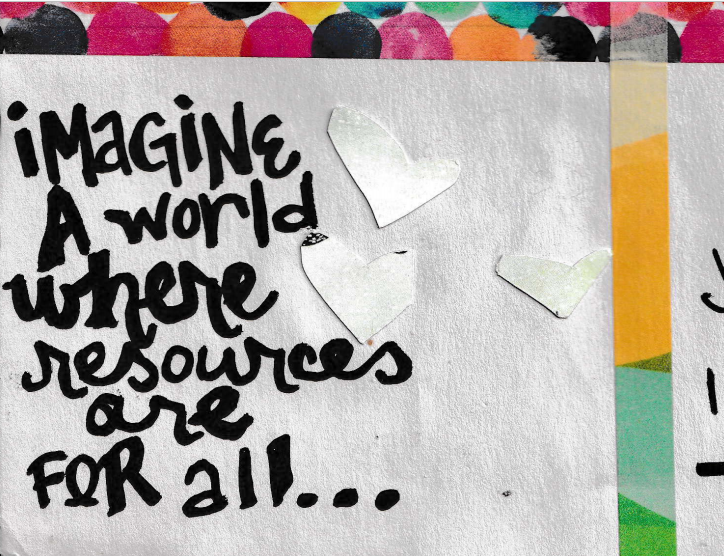 iMAGiNE
A world
where
resources
are
FOR all...